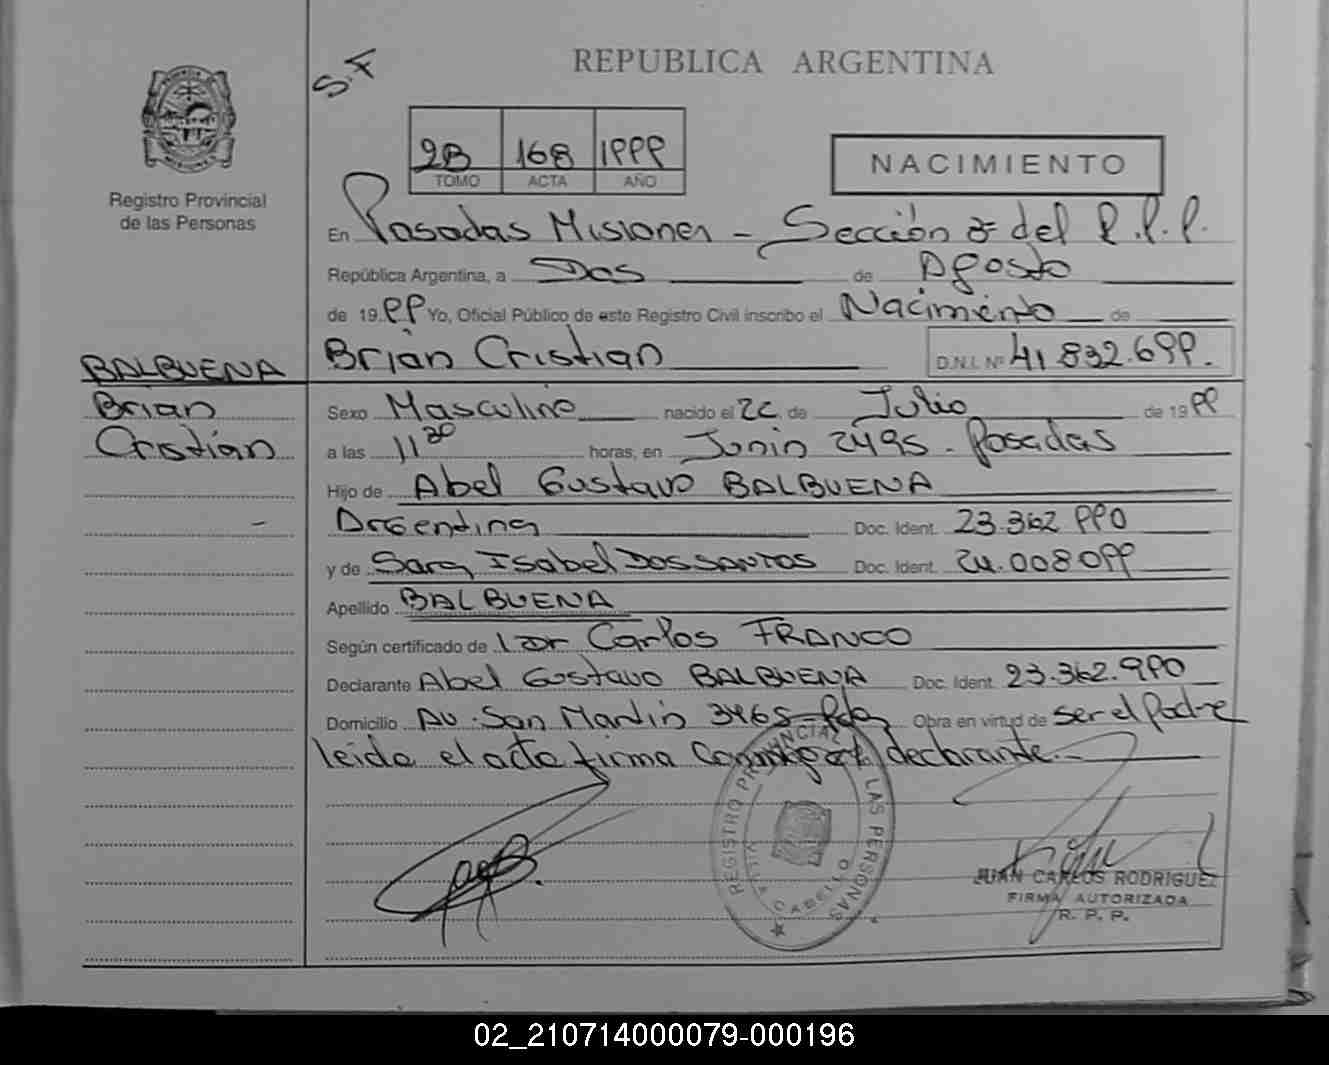 S.F
REPUBLICA ARGENTINA
2B 168 1999
TOMO ACTA AÑO
NACIMIENTO
Registro Provincial
de las Personas
En Posadas Misiones - Sección 2ª del R.P.P.
República Argentina, a Dos de Agosto
de 1999 Yo, Oficial Público de este Registro Civil inscribo el Nacimiento de
BALBUENA
Brian
Cristian
Brian Cristian D.N.I. Nº 41.832.699.
Sexo Masculino nacido el de Julio de 1999
a las 11 30 horas, en Junin 2495 - Posadas
Hijo de Abel Gustavo BALBUENA
Argentina Doc. Ident. 23.362.990
y de Sara Isabel DOS SANTOS Doc. Ident. 24.008.099
Apellido BALBUENA
Según certificado de Dr Carlos FRANCO
Declarante Abel Gustavo BALBUENA Doc. Ident. 23.362.990
Domicilio Av. San Martin 3465 - Pdas Obra en virtud de ser el padre
leida el acta firma conmigo el declarante.-
REGISTRO PROVINCIAL DE LAS PERSONAS
VILLA CABELLO
JUAN CARLOS RODRIGUEZ
FIRMA AUTORIZADA
R. P. P.
02_210714000079-000196